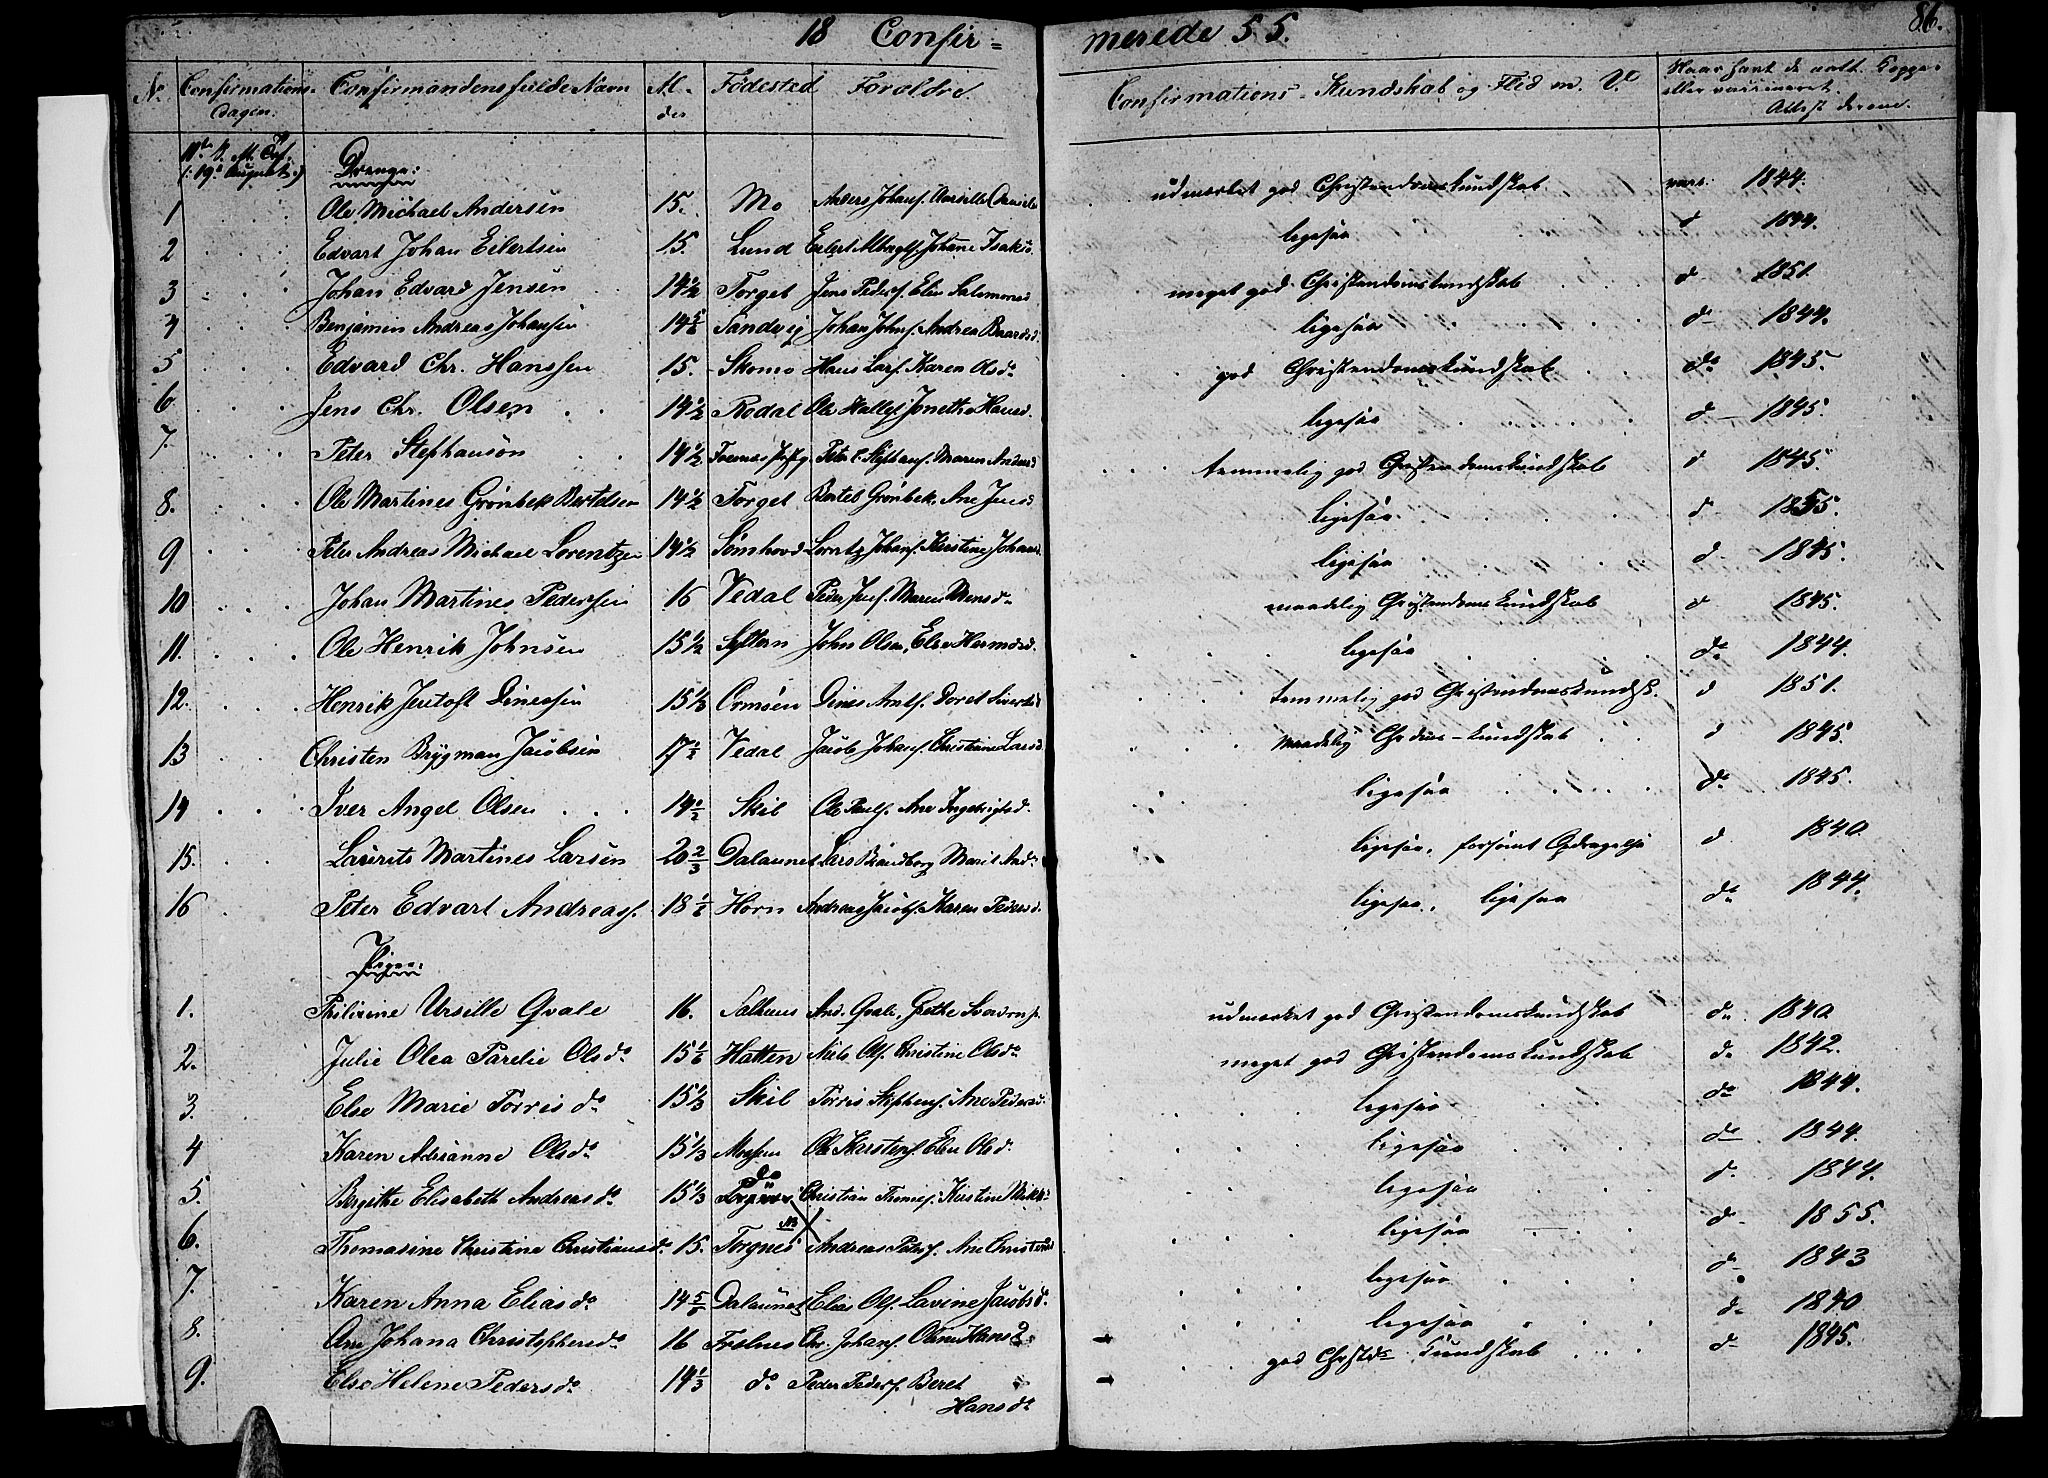 18 Confir= merede 55. 86.
No Confirmations- Dagen. Confirmandens fulde Navn Al- der Fødested Forældre Confirmations-Kundskab og Flid m. V. Naar havt de natl. Kopper eller vaccineret. Attest derom.
(: 19de August :)
Drenge:
1 Ole Michael Andersen 15. Mo Anders Johans. udmærket god Christendomskundskab vacc: 1844.
2 Edvart Johan Eilertsen 15. Lund Johane Isaksd. ligesaa d 1844.
3 Johan Edvard Jensen 14 1/2 Torget Jens Peders. Elen Salomonsd meget god Christendomskundskab d 1851.
4 Benjamin Andreas Johansen Sandvig Johan Johns. Andrea Baardsd. ligesaa d 1844.
5 Edvard Chr. Hanssen 15. Skomo Hans Lars. Karen Olsd. god Christendomskundskab do 1845.
6 Jens Chr. Olsen 14 1/2 Rodal Ole Jonetha Hansd. ligesaa d 1845.
7. Peter Stephansøn 14 1/2 Peter C. Stephans. Maren Andersd temmelig god Christendomskundskab d 1845.
8. Ole Martines Grønbek Bertelsen 14 1/2 Torget Bertel Grønbek. Ane Jensd ligesaa d 1855.
9 Peter Andreas Michael Lorentzen 14 1/2 Sømhovd Lorntz Johans. Kirstine Johansd. ligesaa d 1845.
10 Johan Martines Pedersen 16 Vedal Peder Jens. Maren Monsd. maadelig Christendomskundskab d 1845.
11. Ole Henrik Johnsen 15 1/2 John Olsen, Else Hermansd. ligesaa do 1844.
12. Henrik Jentoft Dinessen 15 1/3 Ormøen Dines Arnts. Doret Sivertsd temmelig god Christendomskundsk. d 1851.
13 Christen Brygman Jacobsen 17 1/2 Vedal Jacob Johans. Christine Larsd maadelig Chrdms-kundskab d 1845.
14 Iver Angel Olsen Skil Ole Pauls. Ane Ingebrigtsd. ligesaa do 1845.
15. Laurits Martines Larsen 20 2/3 Dalaunet Lars Brandborg Marit Andd ligesaa, forsømt Opdragelse d 1840.
16 Peter Edvart Andreass. 18 1/6 Horn Andreas Jacobs. Karen Pedersd. ligesaa, ligesaa do 1844.
Piger:
1. Ursille Qvale 16. And. Qvale, Grethe udmærket god Christendomskundskab do 1840.
2. Julie Olea Parelie Olsdr. 15 1/6 Hatten Niels Ols. Christine Olsdr. meget god Christendomskundskab do 1842.
3. Else Marie Torrisdr. 15 1/3 Skil Torris Stephens. Ane Pedersd. ligesaa do 1844.
4 Karen Adrianne Olsdr. 15 1/3 Ole Kirstens. Elen Olsd. ligesaa do 1844.
5. Bergithe Elisabeth Andreasdr. 15 1/3 do Christian Thomes. Kirstine ligesaa d 1844.
6. Thomasine Christine Christiansdr. 15. NB Torgnes Andreas Peters. Ane Christensd ligesaa d 1855.
7. Karen Anna Eliasdr. 14 5/6 Dalaunet Elias Ols. Lavine Jacobsd. ligesaa d 1843
8. Ane Johana Christophersdr. 16 Chr. Johans. Olava Hansd. ligesaa d 1840
9. Else Helene Pedersdr. 14 1/3 do Peder Peders. Beret Hansdr. god Chrstds Kundskab d 1845.